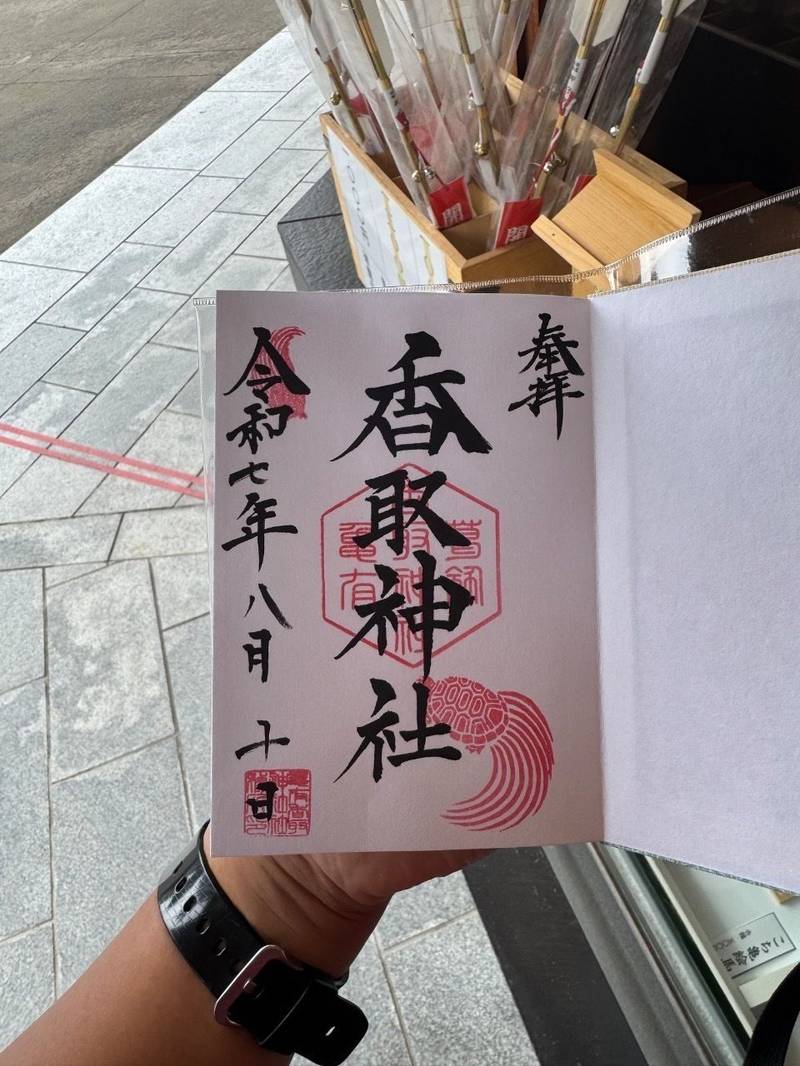 奉拝
香取神社
葛飾
亀有
令和七年八月十日
開
開
こち亀絵馬